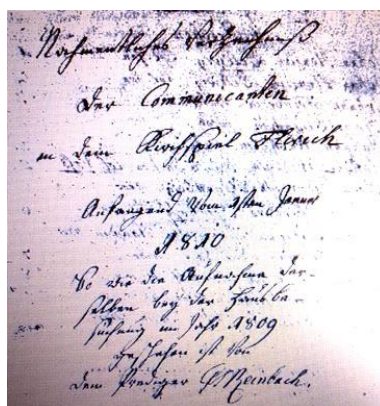 Nahmentliches Verzeichniß
Der Communicanten
in dem Kirchspiel Flerich
Anfangend vom 1sten Januar
1810
So wie die Aufnahme der-
selben bey der Hausbe-
suchung im Jahr 1809
geschehen ist von
dem Prediger Reinbach.